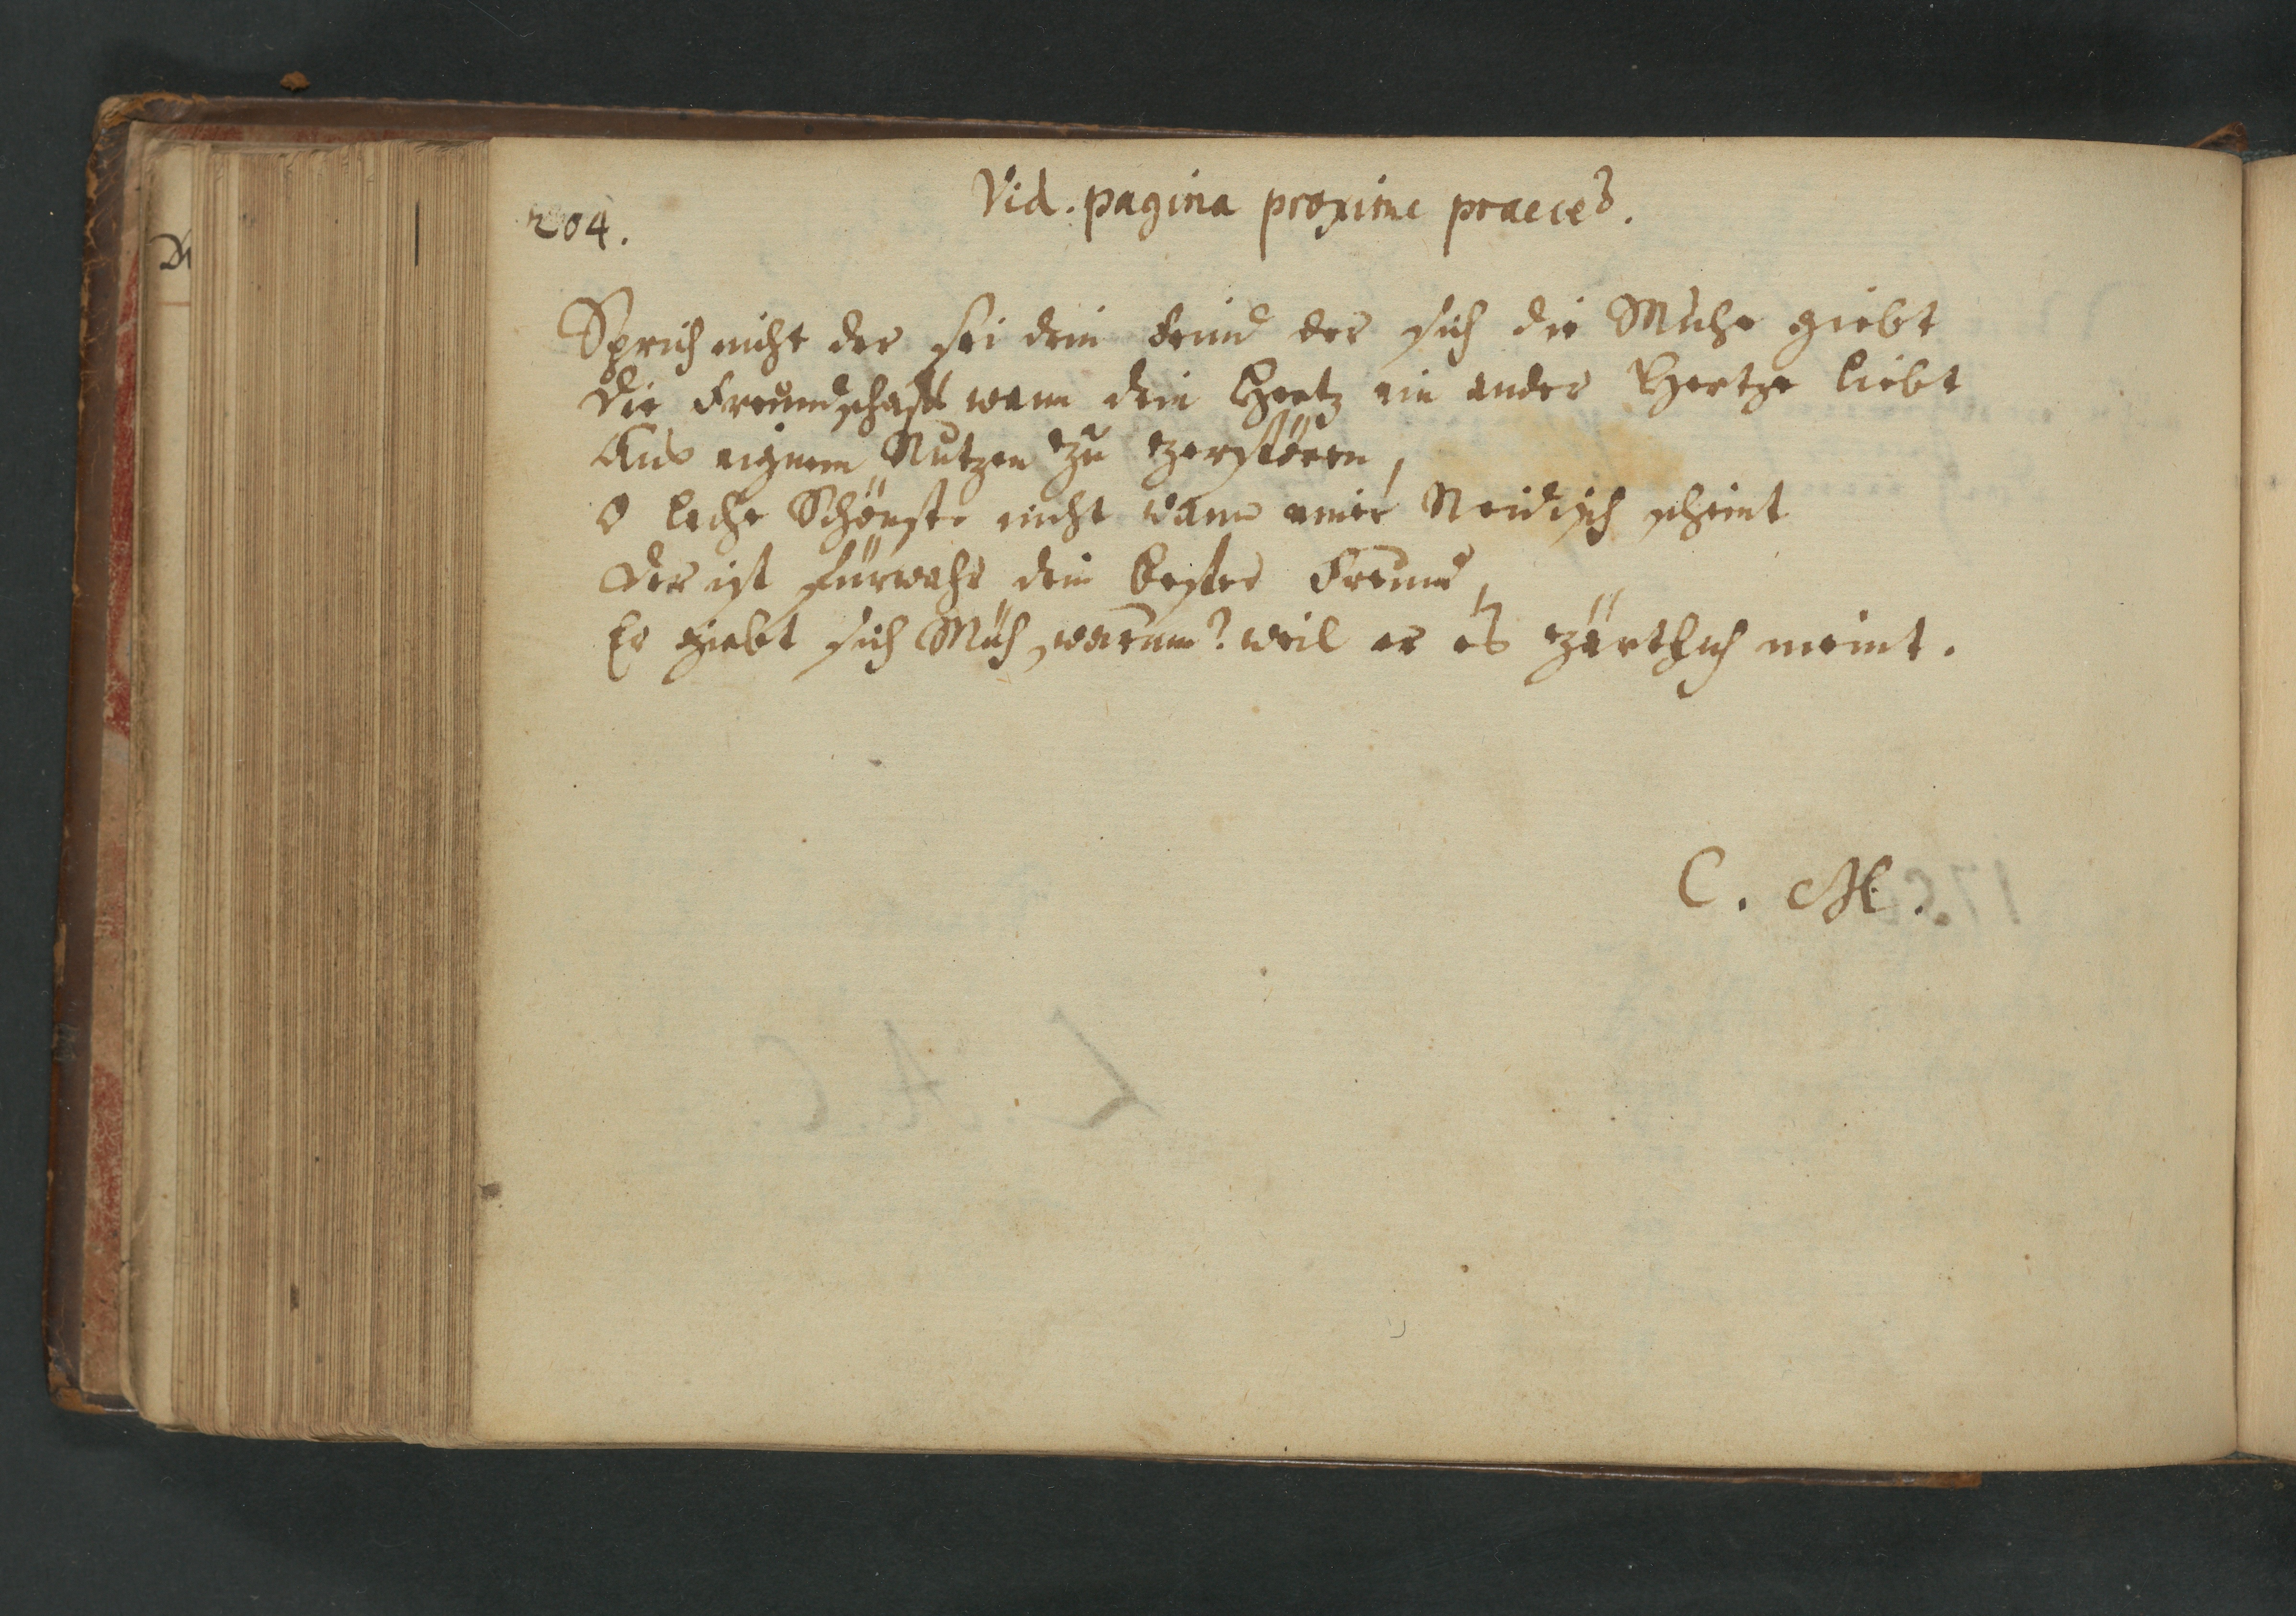 Vid. pagina proxime praeced.
204.
Sprich nicht der sei dein Feind der sich die Mühe giebt
die Freundschafft wann dein Hertz ein ander Hertze liebt
Aus eignem Nutzen zu zerstören,
O lache Schönste nicht wann einer Neidisch scheint
der ist fürwahr dein bester Freund,
Er giebt sich Müh, warum? weil er es zärtlich meint.
C. M.